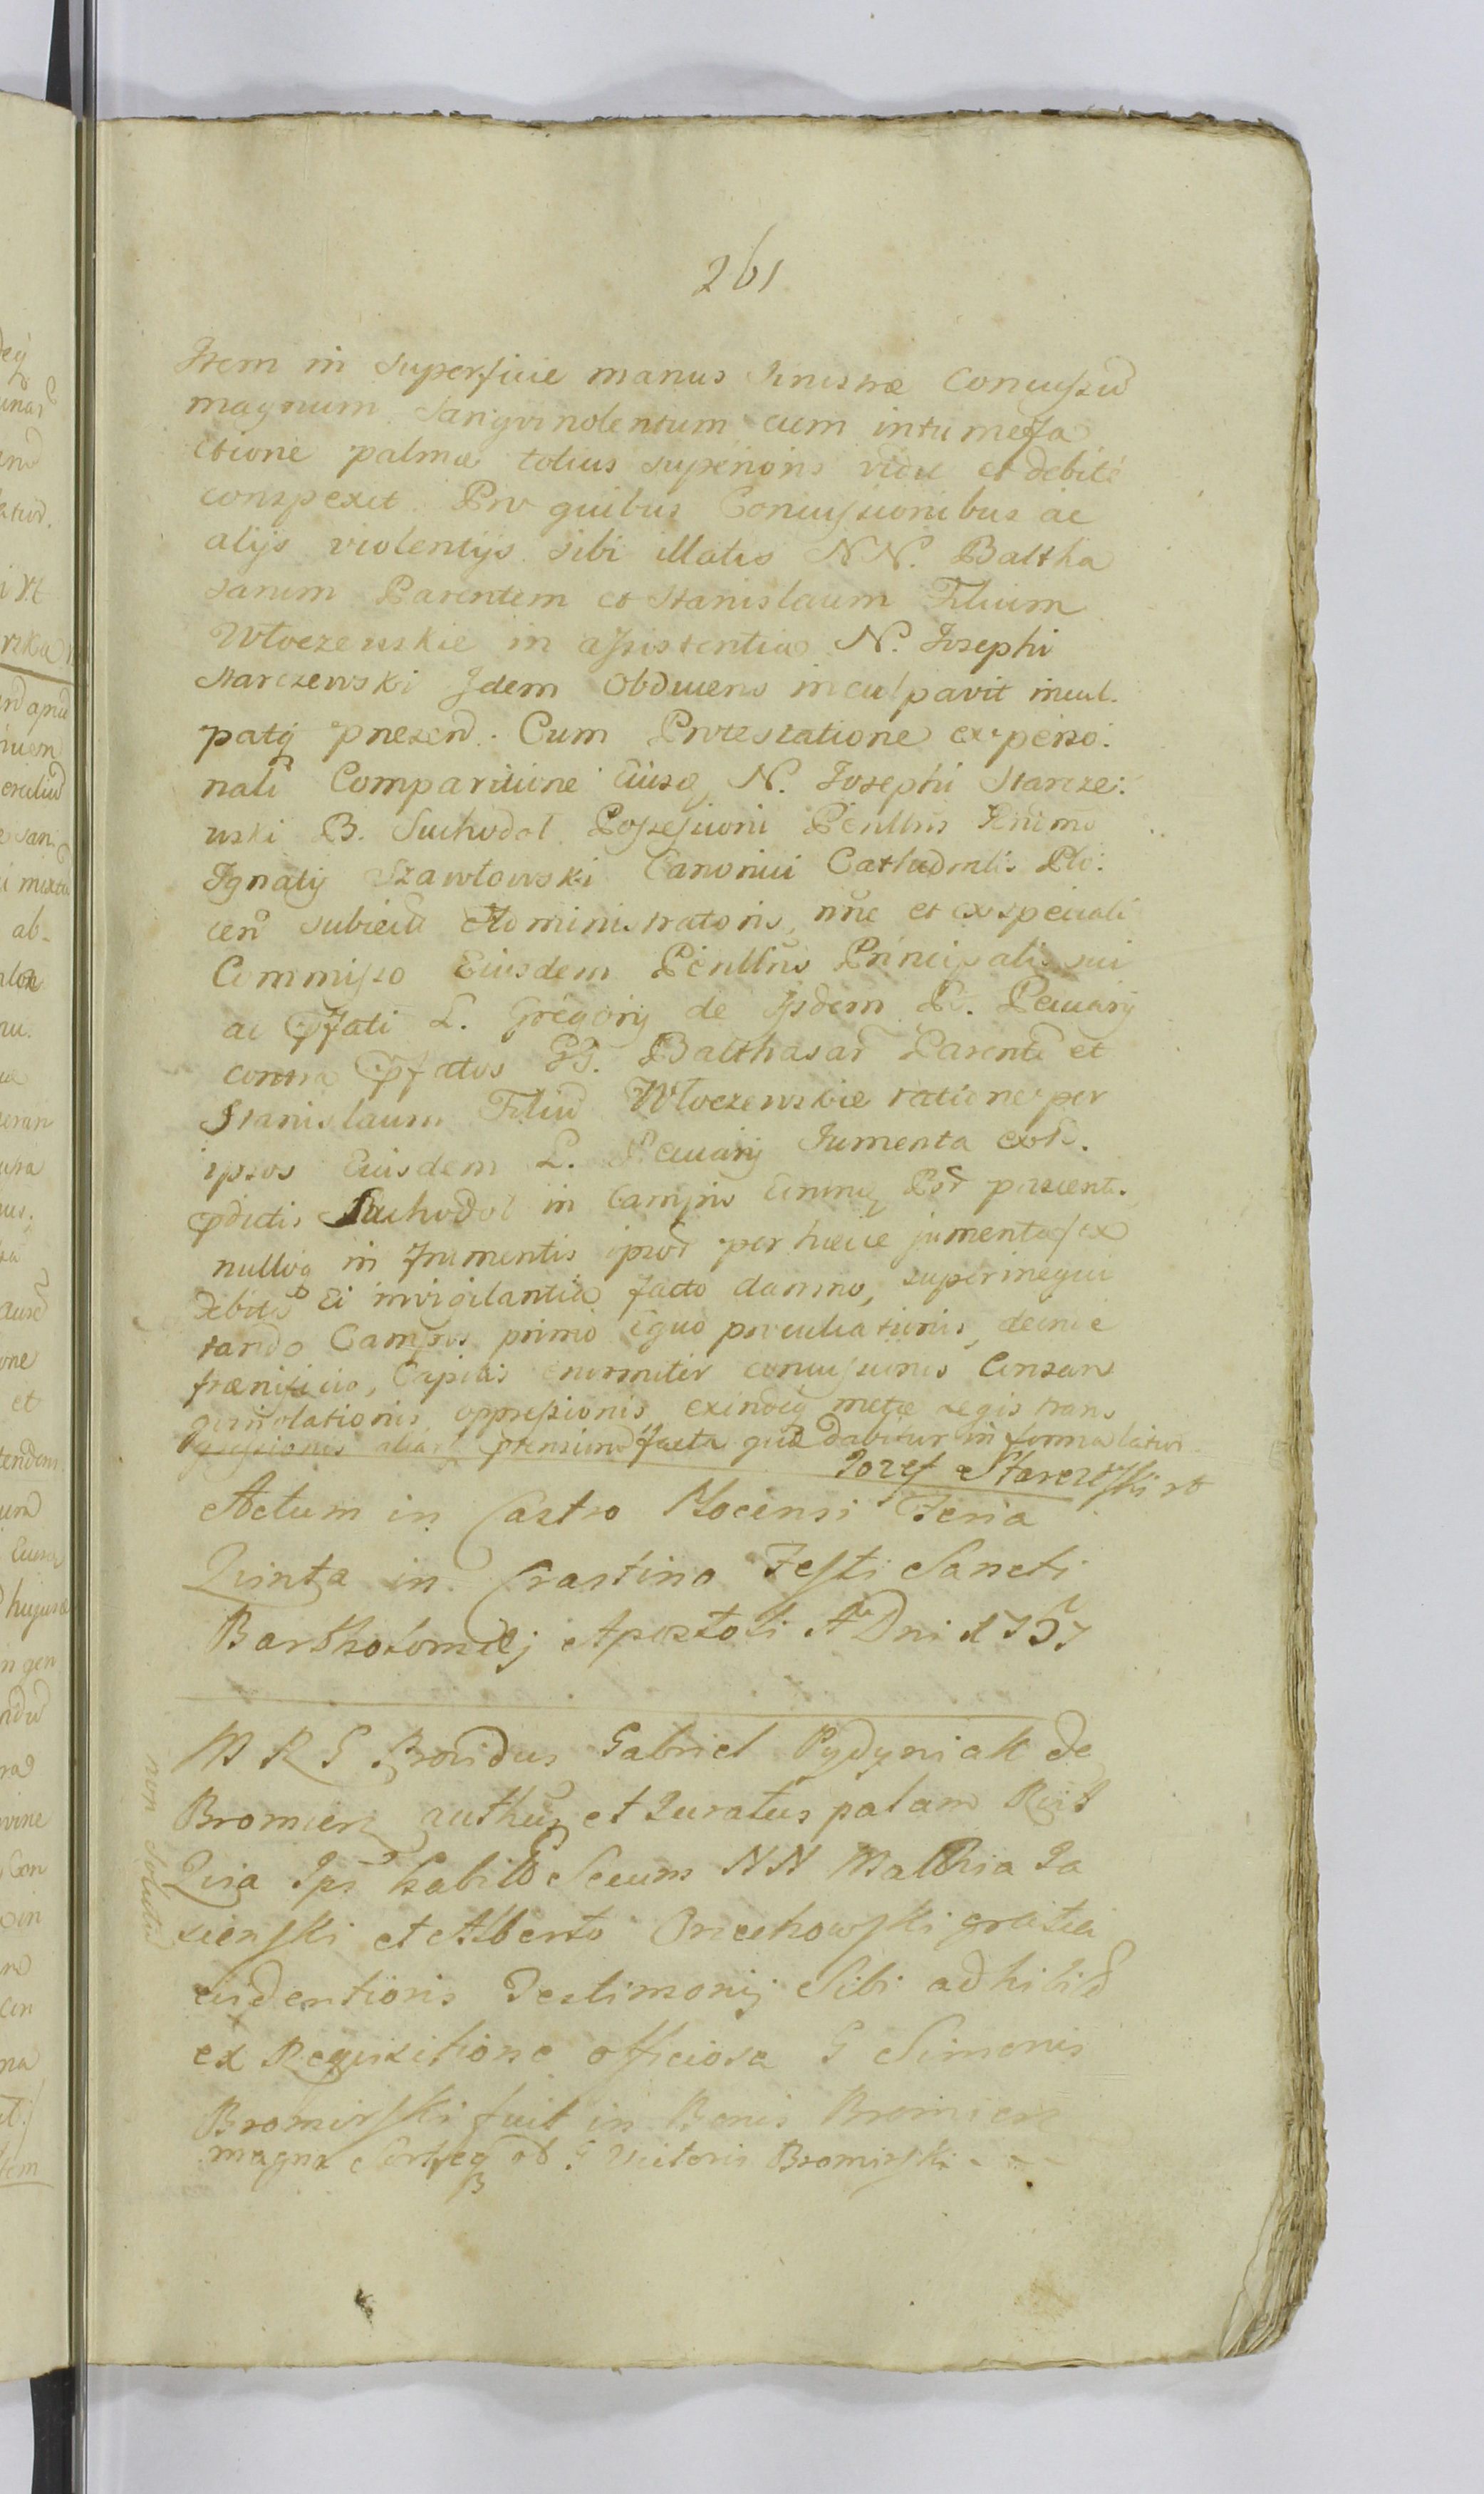 261
Item in superficie manus sinistræ Concussũ
magnum Sangvinolentum cum intumefa
ctione palmæ totius superioris vidit et debitè
conspexit. Pro quibus Concussionibus ac
alijs violentijs sibi illatis NN. Baltha
sarum Parentem et Stanislaum Filium
Włoczewskie in assistentia N. Josephi
Starczewski Idem Obducens inculpavit incul.
patq presen. Cum Protestatione ex perso:
nali Comparitione Eiusq N. Josephi Starcze:
wski B. Suchodol Possessioni Perillris
Ignatij Szawłowski Canonici Cathedralis Plo:
cen subiecti Administratoris, nne et ex speciali
Commisso Eiusdem Perillris Principalis sui
ac Pfati L. Gregorij de Ijsdem B. Pecuarij
contra Pfatos GG. Balthasar Parente et
Stanislaum Filiũ Włoczewskie ratione per
ipsos Eiusdem L. Pecuarij Jumenta ex B.
Pdictis Suchodol in Campis pascent.
nulloq in frumentis ipsor per hæcce jumenta ex
debita Ei invigilantia facto damno, superinequi
tando Campis primo equo proculcationis, deinde
frænificio, Capitis enormiter concussionis Consan
gvinolationis oppressionis exindeq metæ legis trans
gressionis aliarũ ptensionũ facta quæ dabitur in forma latiori
Jozef Starczewski
Actum in Castro Plocensi Feria
Quinta in Crastino Festi Sancti
Bartholomæj Apostoli A Dni 1757
M R G Prouidus Gabriel Pydyniak de
Bromierz authus et Juratus palam
Quia Ips habito Secum NN Mathia Ja
sienski et Alberto Orzechowski gratia
euidentioris Testimonij Sibi adhibit
ex Requisitione officiosa G Simonis
Bromirski fuit in Bonis Bromierz
magna Sorteq G Victoris Bromirski - - -
non solut